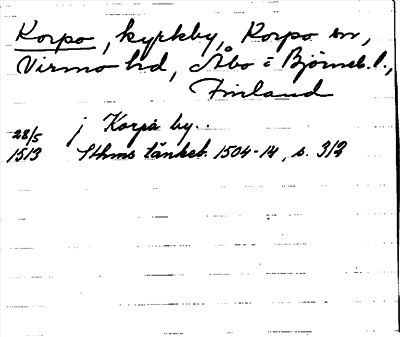 Korpo, kyrkby, Korpo sn,
Virmo hd, Åbo = Björneb. l.,
Finland
28/5 j Korpå by..
1513 Sthms tänkeb. 1504-14, s. 312